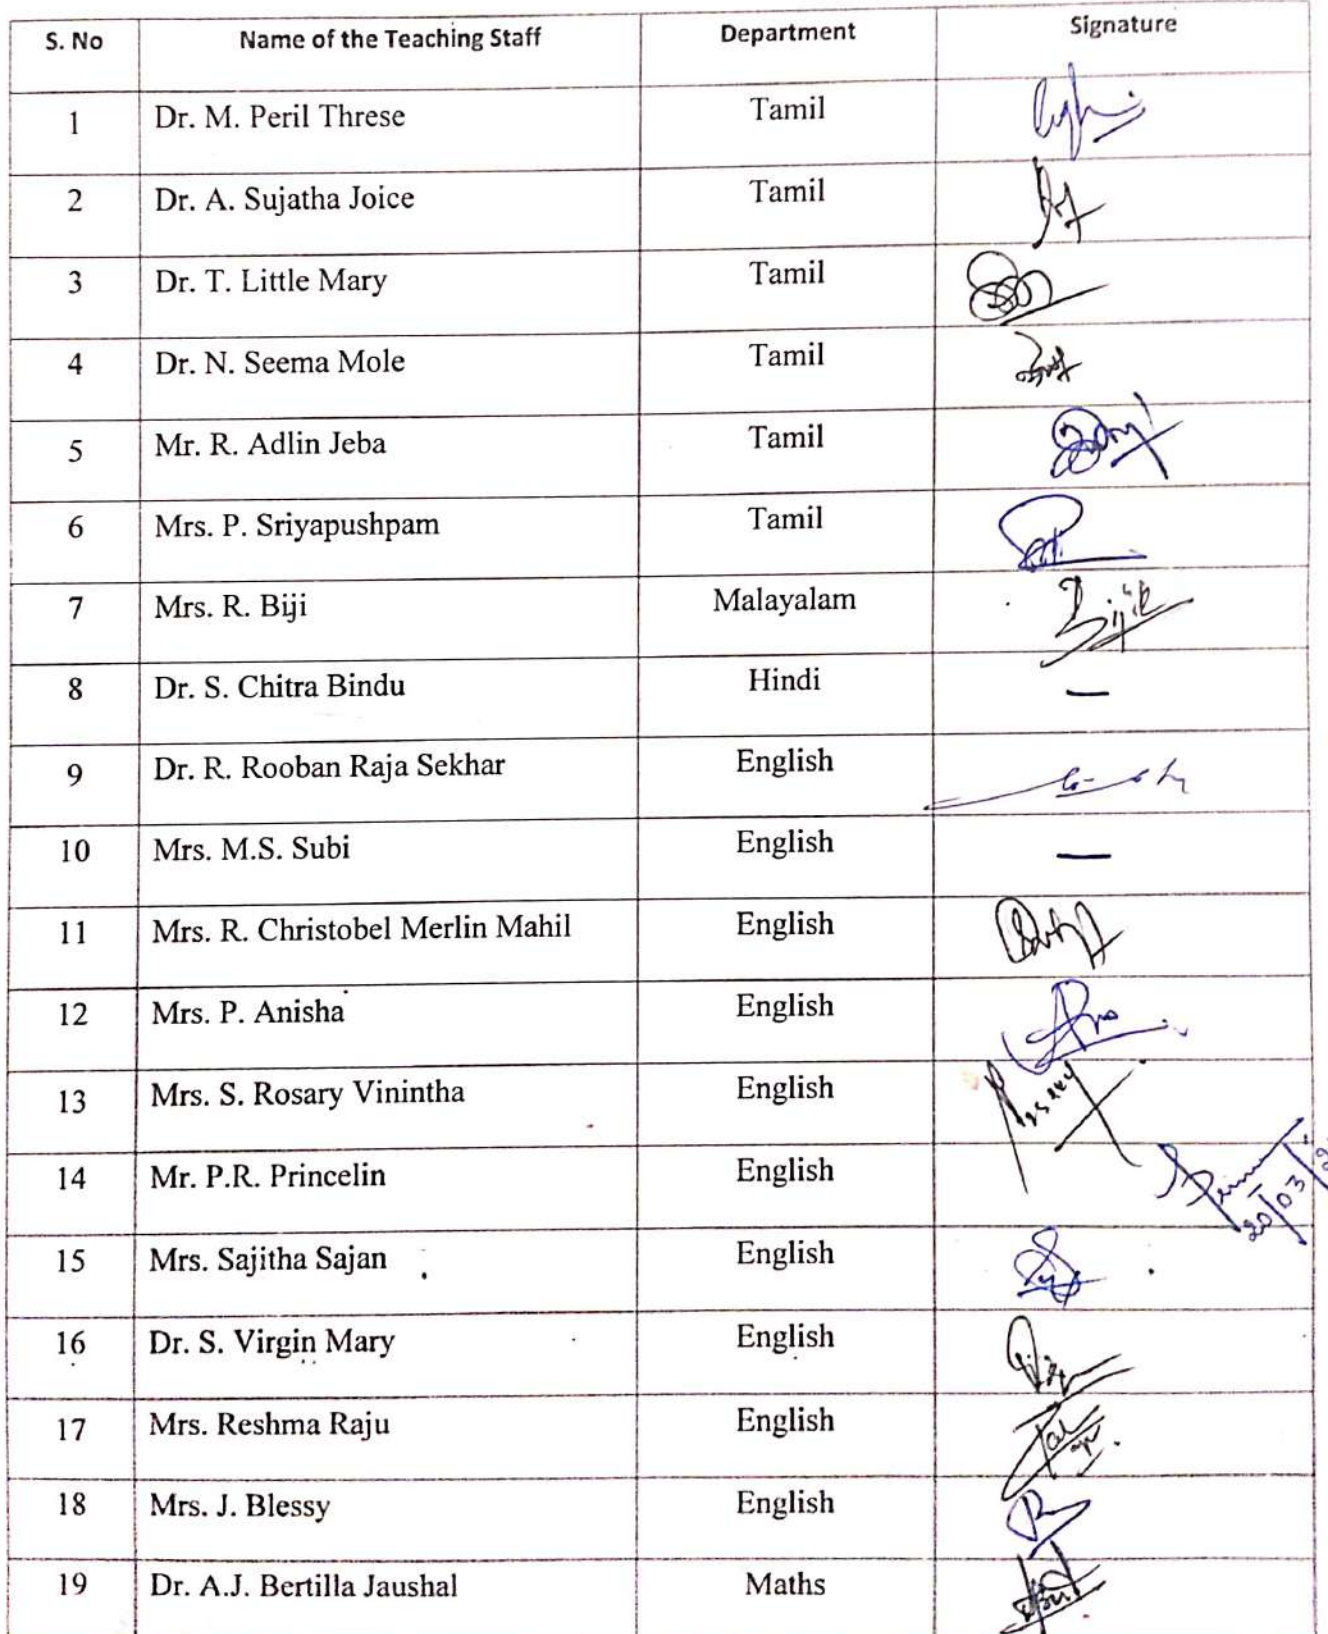 S. No Name of the Teaching Staff Department Signature
1 Dr. M. Peril Threse Tamil
2 Dr. A. Sujatha Joice Tamil
3 Dr. T. Little Mary Tamil
4 Dr. N. Seema Mole Tamil
5 Mr. R. Adlin Jeba Tamil
6 Mrs. P. Sriyapushpam Tamil
7 Mrs. R. Biji Malayalam
8 Dr. S. Chitra Bindu Hindi —
9 Dr. R. Rooban Raja Sekhar English
10 Mrs. M.S. Subi English —
11 Mrs. R. Christobel Merlin Mahil English
12 Mrs. P. Anisha English
13 Mrs. S. Rosary Vinintha English
14 Mr. P.R. Princelin English 20/03/
15 Mrs. Sajitha Sajan English
16 Dr. S. Virgin Mary English
17 Mrs. Reshma Raju English
18 Mrs. J. Blessy English
19 Dr. A.J. Bertilla Jaushal Maths